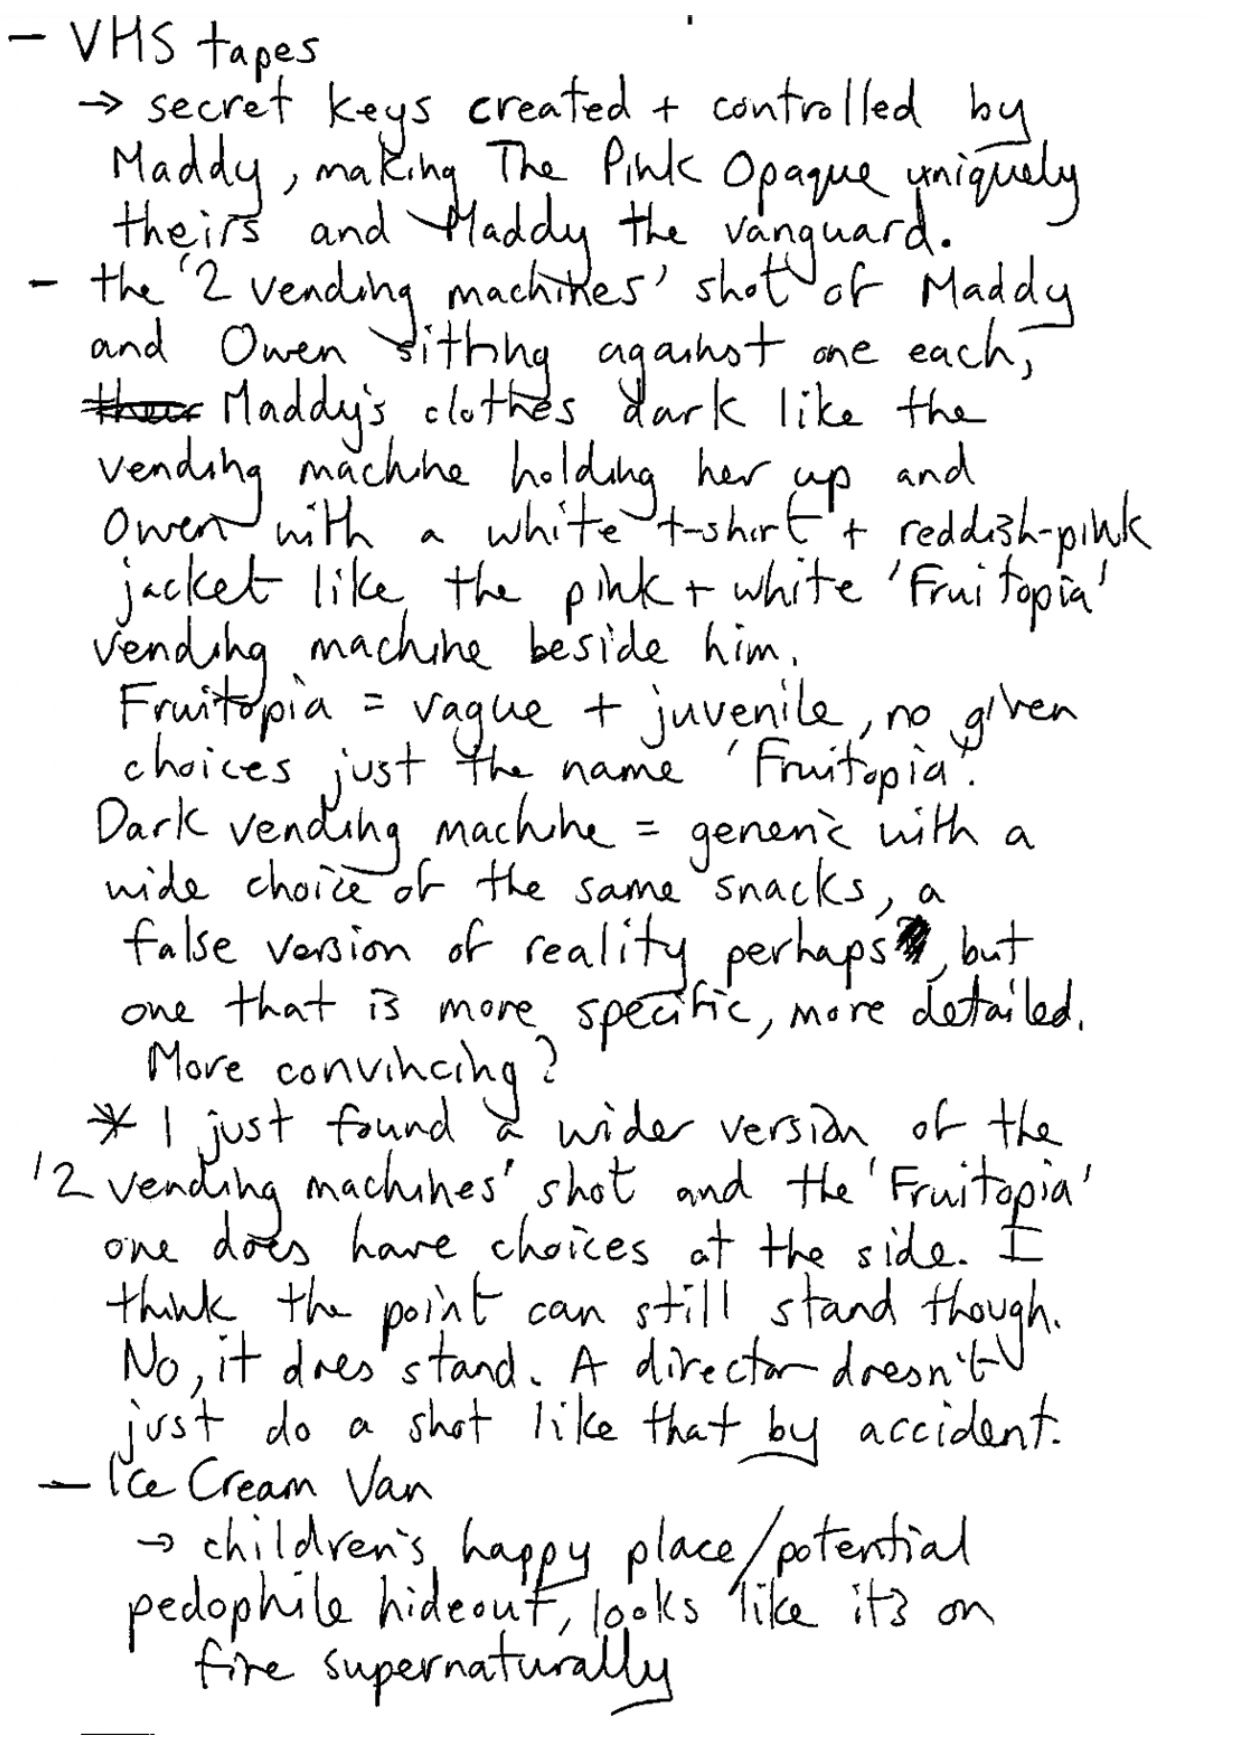 - VHS tapes
→ secret keys created + controlled by
Maddy, making The Pink Opaque uniquely
theirs and Maddy the vanguard.
- the '2 vending machines' shot of Maddy
and Owen sitting against one each,
their Maddy's clothes dark like the
vending machine holding her up and
Owen with a white t-shirt + reddish-pink
jacket like the pink + white 'Fruitopia'
vending machine beside him.
Fruitopia = vague + juvenile, no given
choices just the name 'Fruitopia'.
Dark vending machine = generic with a
wide choice of the same snacks, a
false version of reality perhaps, but
one that is more specific, more detailed.
More convincing?
* I just found a wider version of the
'2 vending machines' shot and the 'Fruitopia'
one does have choices at the side. I
think the point can still stand though.
No, it does stand. A director doesn't
just do a shot like that by accident.
- Ice Cream Van
→ children's happy place/potential
pedophile hideout, looks like it's on
fire supernaturally